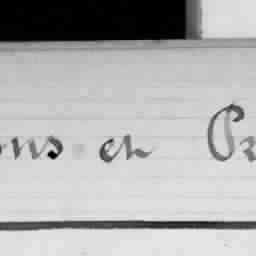 ons et Pr